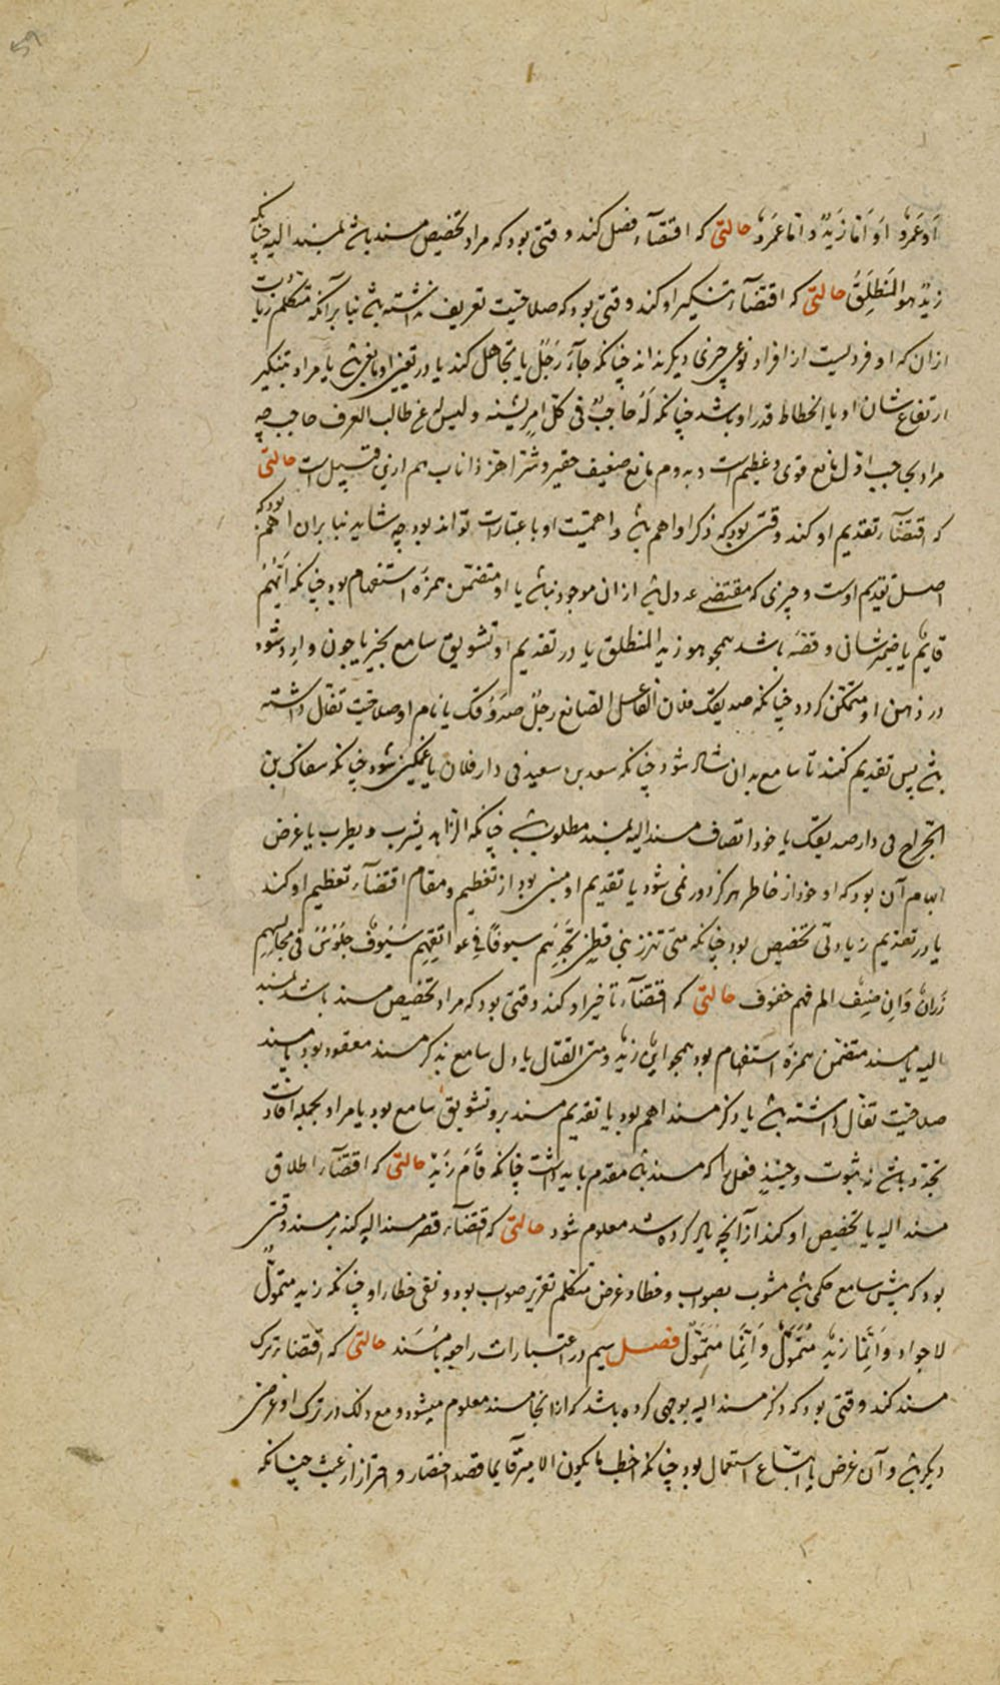 اَو عَمرو اَو اَمّا زَیدٌ و امّا عَمرو حالتی که اقتضآء فصل کند وقتی بود که مراد تخصیص مسند باشد بمسند الیه چنانکه
زیدٌ هو المُنطَلِقُ حالتی که اقتضآء تنکیر او کند وقتی بود که صلاحیت تعریف نداشته باشد بنا بر آنکه متکلم زیادت
از آن که او فردیست از افراد نوعی چیزی دیگر نداند چنانکه جآءَ رَجُلٌ یا تجاهل کند یا در تعیین او مانعی باشد یا مراد بتنکیر
ارتفاع شان او یا انحطاط قدر او باشد چنانکه لَهُ حاجبٌ فی کلّ امرٍ یشینه و لیس له عن طالب العرف حاجب چه
مراد بحاجب اول مانع قوی و عظیم است و به دوم مانع ضعیف حقیر و شرّ اهرّ ذا ناب هم ازین قبیل است حالتی
که اقتضآء تقدیم او کند وقتی بود که ذکر او اهم باشد و اهمیّت او باعتبارات تواند بود چه شاید بنا بر آن اهم بود که
اصل تقدیم اوست و چیزی که مقتضی عدول باشد از آن موجود نباشد یا او متضمن همزهٔ استفهام بود چنانکه اَیّهُم
قایم یا ضمیر شانی و قصّه باشد همچو هو زید المنطلق یا در تقدیم او تشویق سامع بخبر یا چون وارد شود
در ذهن او متمکن گردد چنانکه صدیقک فلان الفاعل الصانع رجلٌ صدوقک یا نام او صلاحیت تفأل داشته
باشد پس تقدیم کنند تا سامع بدان شاد شود چنانکه سعد بن سعید فی دار فلان یا غمگین شود چنانکه سفاک بن
الجراح فی دار صدیقک یا خود اتصاف مسند الیه بمسند مطلوب باشد چنانکه الزاهد یشرب و یطرب یا غرض
ایهام آن بود که او خود از خاطر هرگز دور نمی شود یا تقدیم او مبنی بود از تعظیم و مقام اقتضآء تعظیم او کند
یا در تقدیم زیادتی تخصیص بود چنانکه متی تهزز بنی قطن تجدهم سیوفاً فی عواتقهم سیوف جلوسٌ فی مجالسهم
رَزانٌ وَ اِن ضیف الم فهم خفوف حالتی که اقتضآء تاخیر او کند وقتی بود که مراد تخصیص مسند باشد بمسند
الیه یا مسند متضمن همزهٔ استفهام بود همچو این زید و متی القتال یا دل سامع بذکر مسند معقود بود یا مسند
صلاحیت تفأل داشته باشد یا ذکر مسند اهم بود یا تقدیم مسند بر و تشویق سامع بود یا مراد بجمله افادت
تجدد باشد نه ثبوت و حینئذ فعل را که مسند باشد مقدم باید داشت چنانکه قامَ زَیدٌ حالتی که اقتضآء اطلاق
مسند الیه یا تخصیص او کند از آنچه یاد کرده شد معلوم شود حالتی که اقتضآء قصر مسند الیه کند بر مسند وقتی
بود که پیش سامع حکمی باشد مشوب بصواب و خطا و غرض متکلم تقریر صواب بود و نفی خطا را و چنانکه زید متموّلٌ
لا جواد وَ اِنّما زیدٌ مُتموّلٌ وَ اِنّما مُتموّلٌ فصل سیم در اعتبارات راجعه بمُسنَد حالتی که اقتضاء ترک
مسند کند وقتی بود که ذکر مسند الیه بوجهی کرده باشد که از آنجا مسند معلوم میشود و مع ذلک در ترک او غرضی
دیگر باشد و آن غرض یا اتباع استعمال بود چنانکه اخطب ما یکون الامیر قایما یا قصد اختصار و احتراز از عبث چنانکه